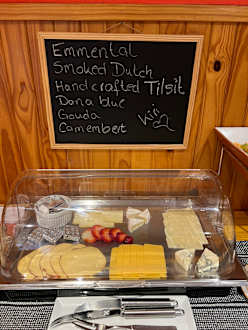 Emmental
Smoked Dutch
Handcrafted Tilsit
Dana blue
Gouda
Camembert